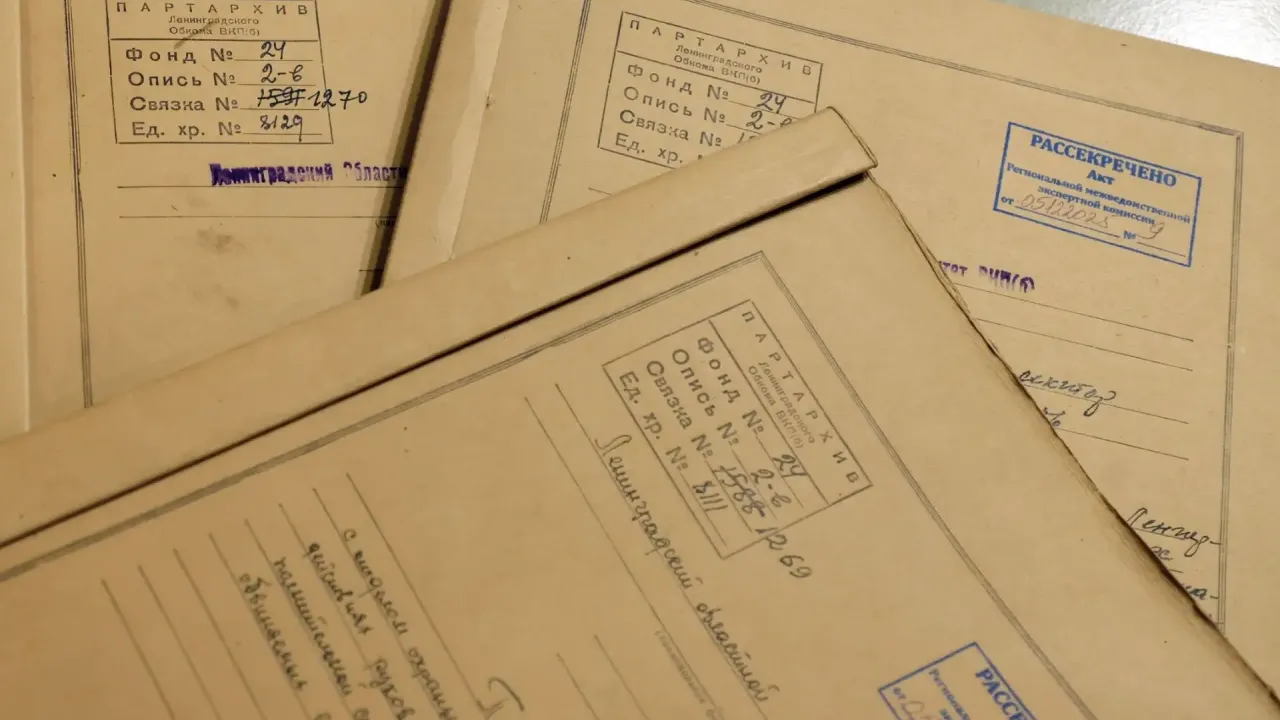 ПАРТАРХИВ
Ленинградского
Обкома ВКП(б)
Фонд № 24
Опись № 2-в
Связка № 1591 1270
Ед. хр. № 8129
Ленинградский Област
ПАРТАРХИВ
Ленинградского
Обкома ВКП(б)
Фонд № 24
Опись № 2-в
Связка №
Ед. хр. №
РАССЕКРЕЧЕНО
Акт
Региональной межведомственной
экспертной комиссии
от 05122025 № 9
тет ВКП(б)
Ленингр-
ПАРТАРХИВ
Ленинградского
Обкома ВКП(б)
Фонд № 24
Опись № 2-в
Связка № 1588 1269
Ед. хр. № 8111
Ленинградский областной
с отделом охраны
РАССЕ
Региональ
от